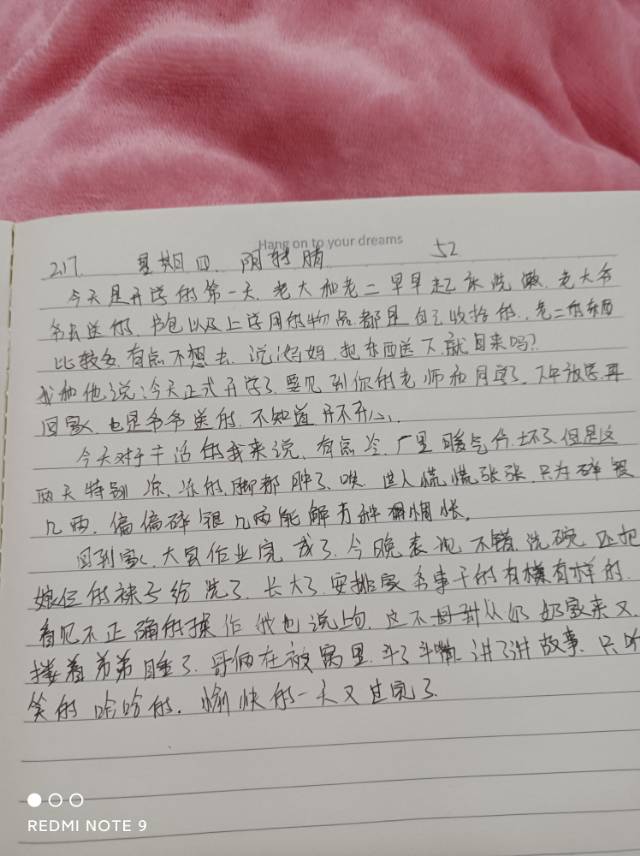 Hang on to your dreams
2.17 星期四 阴转晴 52
今天是开学的第一天,老大和老二早早起床洗漱,老大爷
爷去送的,书包以及上学用的物品都是自己收拾的,老二的东西
比较多,有点不想去,说:妈妈,把东西送下就回来吗?
我和他说:今天正式开学了,要见到你的老师和同学了,下午放学再
回家,也是爷爷送的,不知道开不开心。
今天对于干活的我来说,有点冷,厂里暖气片坏了,但是这
两天特别凉,冻的脚都肿了,唉,世人慌慌张张,只为碎银
几两,偏偏碎银几两能解万种惆怅。
回到家,大宝作业完成了,今晚表现不错,洗碗,还把
娘俩的袜子给洗了,长大了,安排家务事干的有模有样的,
看见不正确的操作他也说上句,这不母刚从奶奶家来又
搂着弟弟睡了,哥俩在被窝里,斗了斗嘴,讲了讲故事,只听
笑的哈哈的,愉快的一天又过完了
REDMI NOTE 9